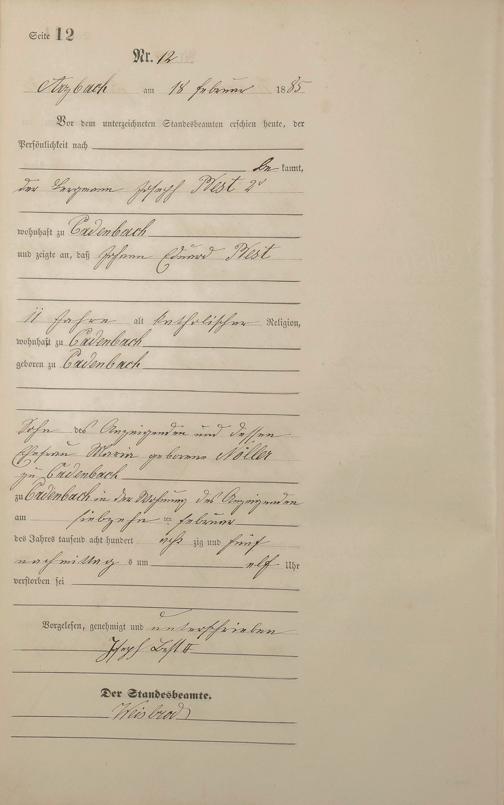 Seite 12
Nr. 12
Arzbach am 18 Februar 1885
Vor dem unterzeichneten Standesbeamten erschien heute, der
Persönlichkeit nach
be kannt,
der Bergmann Joseph Best 2r
wohnhaft zu Cadenbach
und zeigte an, daß Johann Eduard Best
11 Jahre alt katholischer Religion,
wohnhaft zu Cadenbach
geboren zu Cadenbach
Sohn des Anzeigenden und dessen
Ehefrau Maria geborene Nöller
zu Cadenbach
zu Cadenbach in der Wohnung des Anzeigenden
am siebzehn ten Februar
des Jahres tausend acht hundert acht zig und fünf
nachmittag s um elf Uhr
verstorben sei
Vorgelesen, genehmigt und unterschrieben
Joseph Best II
Der Standesbeamte.
Weisbrod